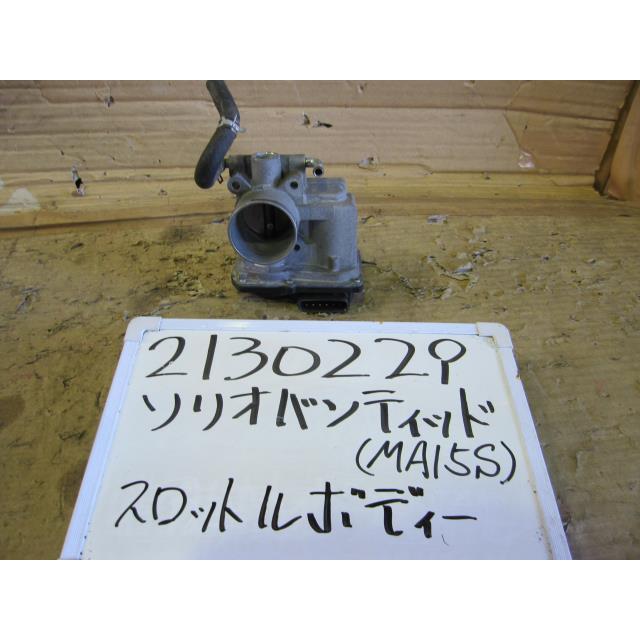 2130229
ソリオバンディッド
(MA15S)
スロットルボディー